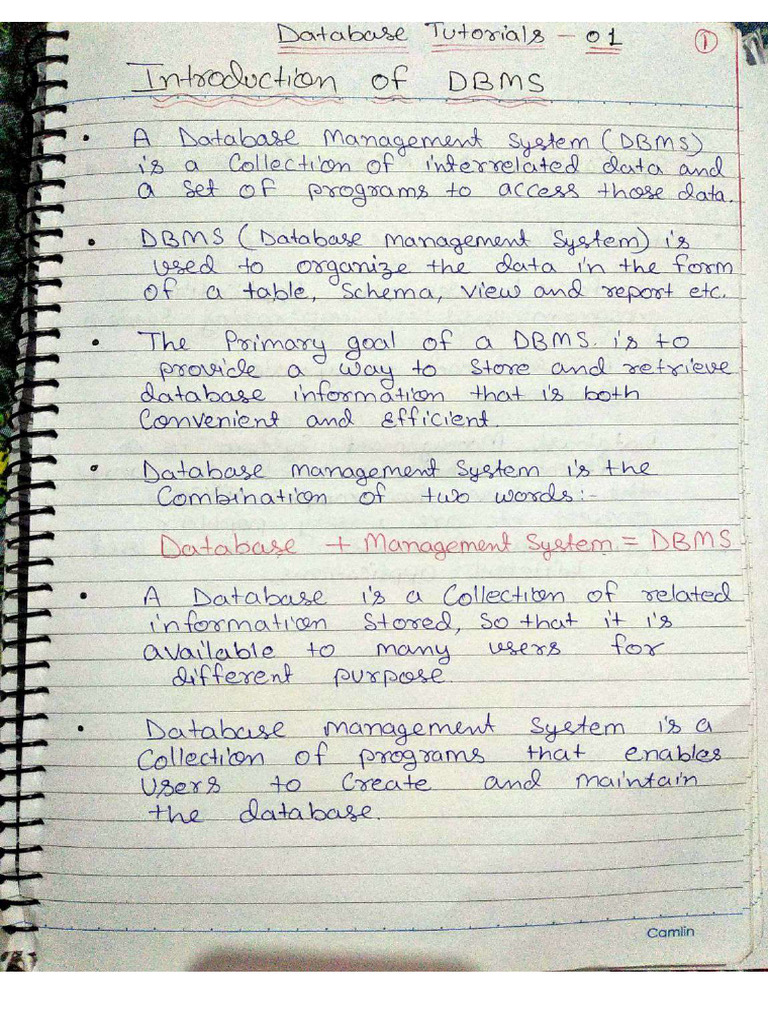 Database Tutorials - 01
①
Introduction of DBMS
• A Database Management System (DBMS)
is a Collection of interrelated data and
a set of programs to access those data.
• DBMS (Database management System) is
used to organize the data in the form
of a table, Schema, view and report etc.
• The Primary goal of a DBMS. is to
provide a way to Store and retrieve
database information that is both
Convenient and efficient.
• Database management System is the
Combination of two words:-
Database + Management System = DBMS
• A Database is a Collection of related
information Stored, So that it is
available to many users for
different purpose.
• Database management System is a
Collection of programs that enables
Users to Create and maintain
the database.
Camlin